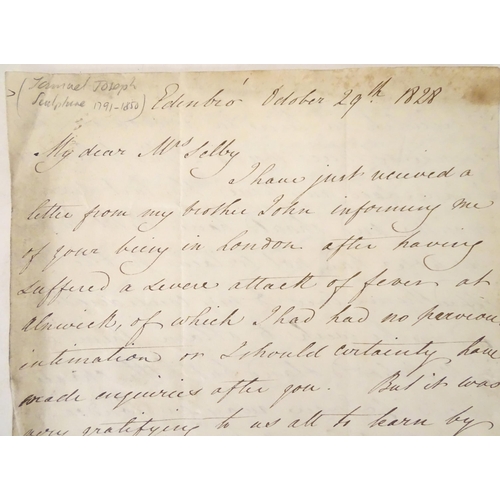 (Samuel Joseph
Sculpture 1791-1850)
Edinbro' October 29th. 1828
My dear Mrs Selby
I have just received a
letter from my brother John informing me
of your being in London after having
suffered a severe attack of fever at
Alnwick, of which I had had no previous
intimation or I should certainly have
made enquiries after you. But it was
very gratifying to us all to learn by